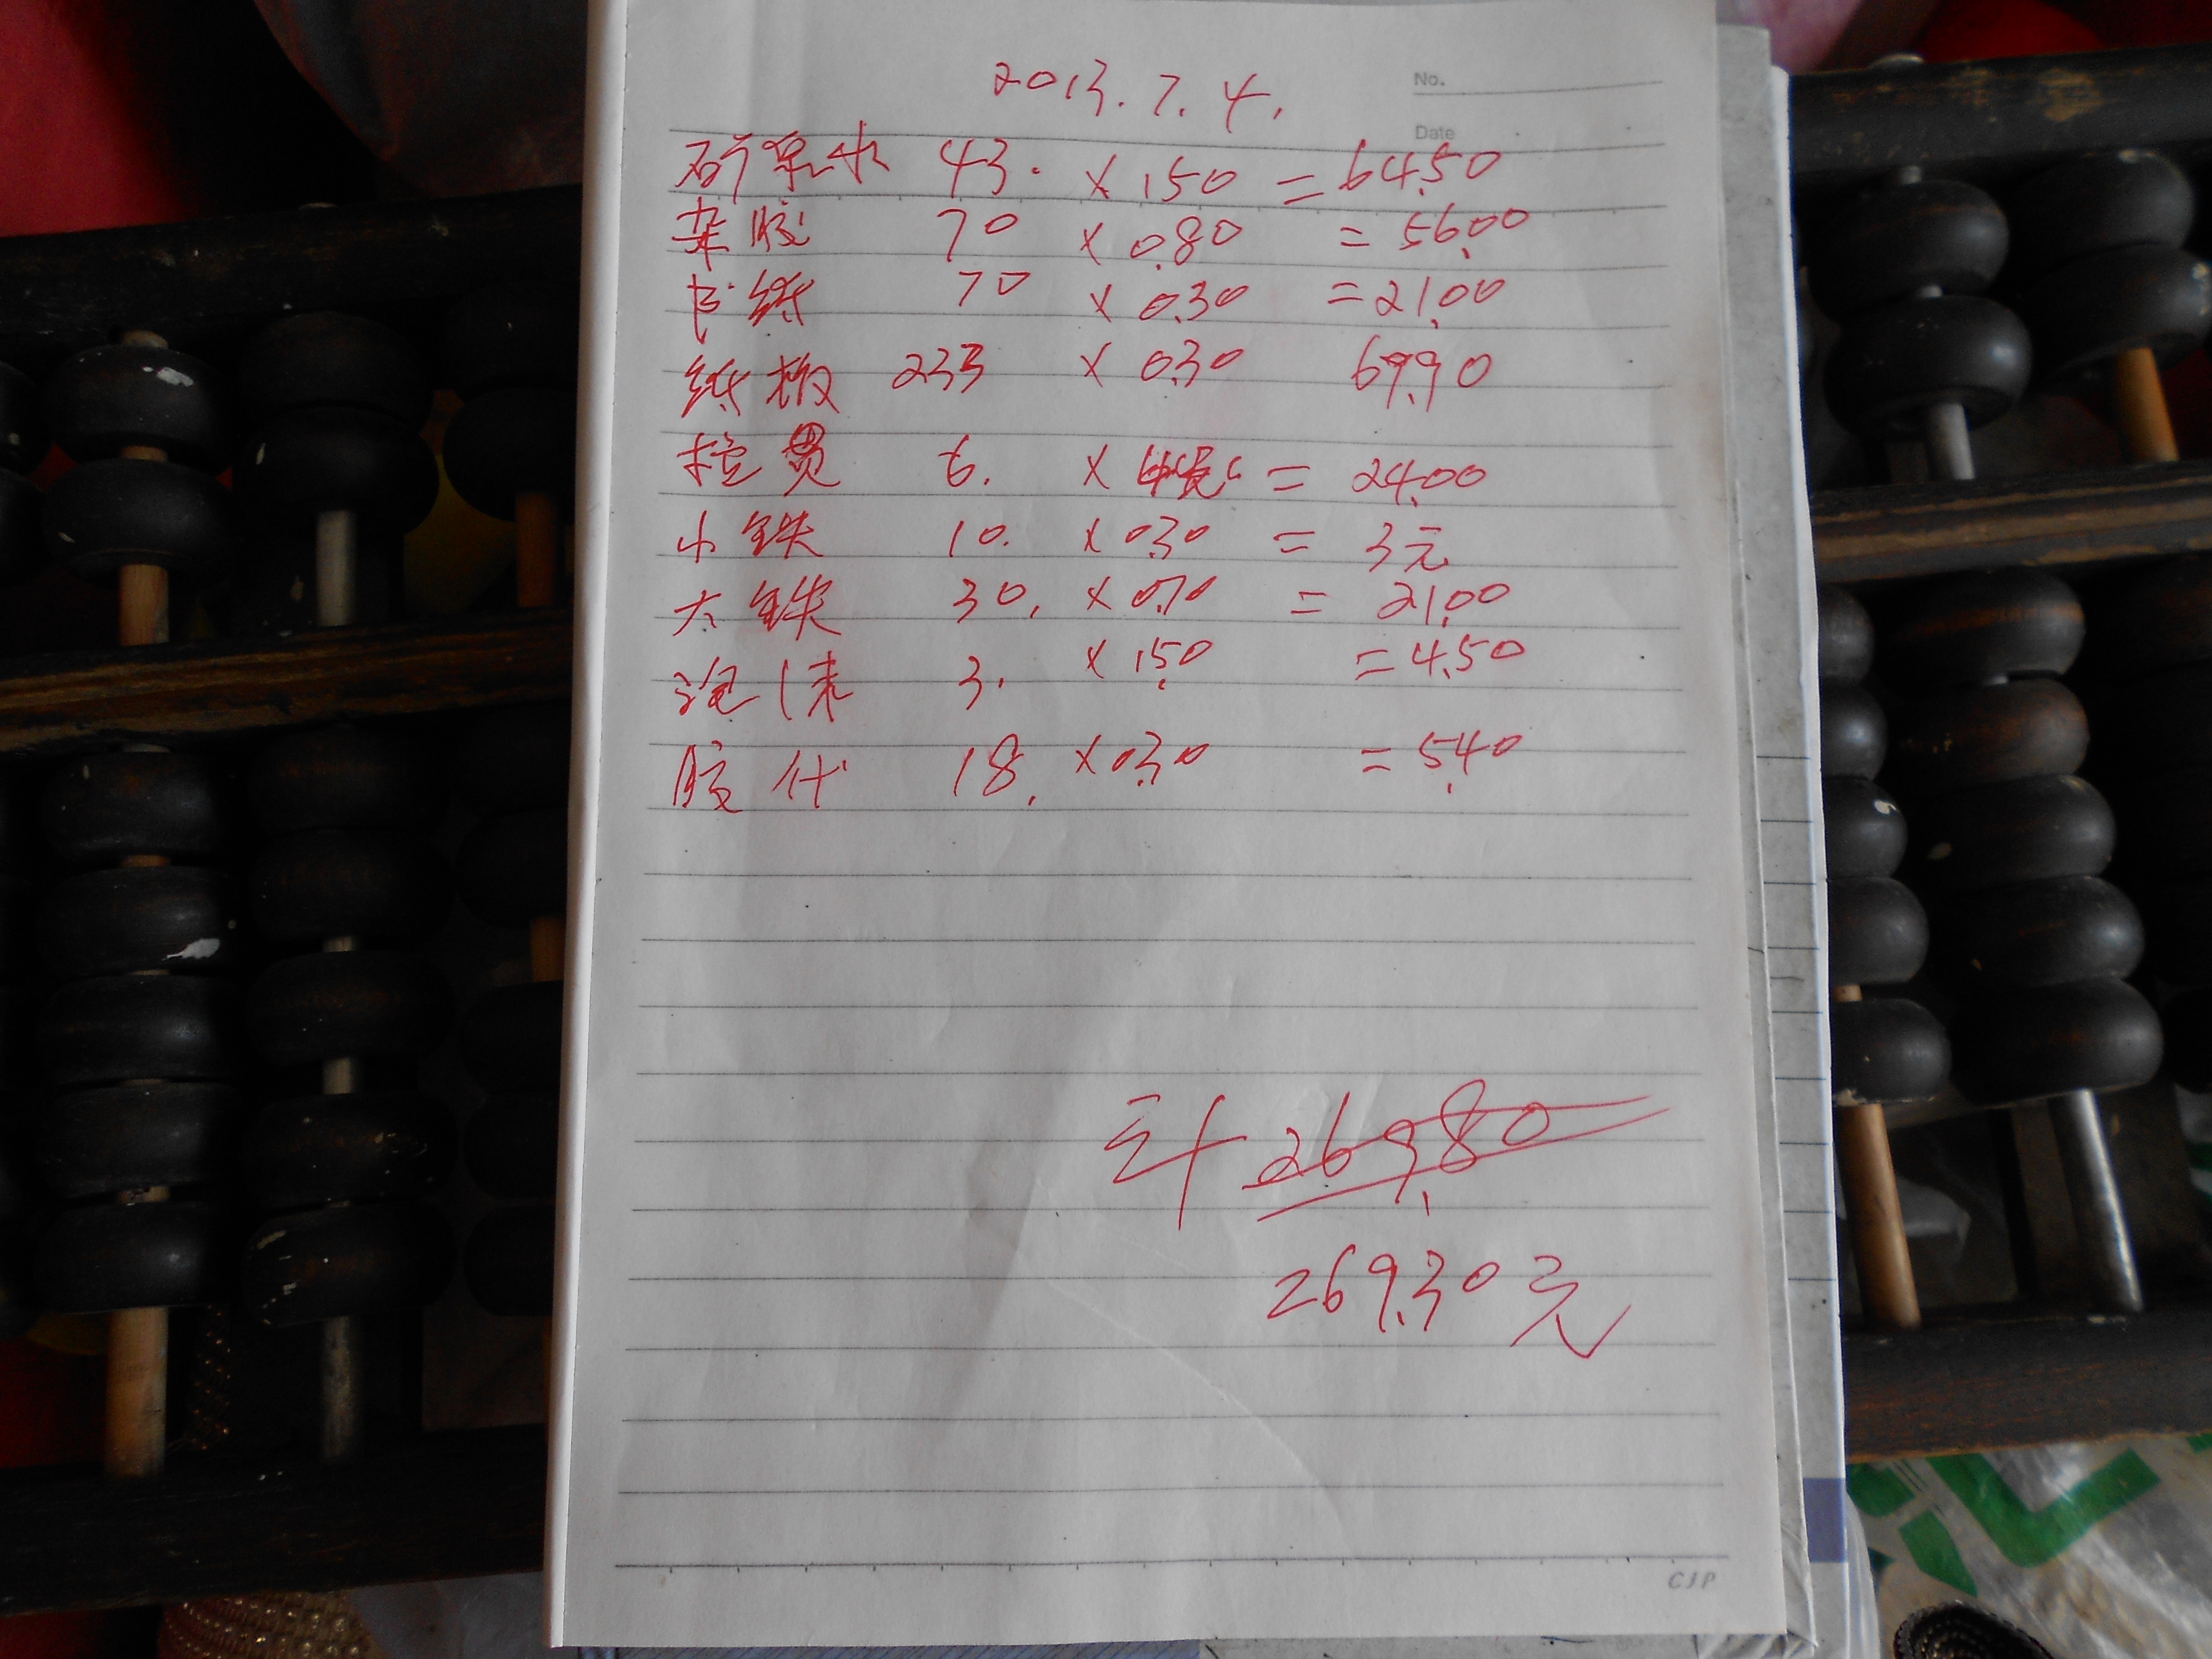 2013.7.4.
No.
Date
矿泉水 43. × 150 = 64.50
杂胶 70 × 0.80 = 56.00
卡纸 70 × 0.30 = 21.00
纸板 233 × 0.30 69.90
6. × = 24.00
小铁 10. × 0.30 = 3元
大铁 30. × 0.70 = 21.00
泡沫 3. × 1.50 = 4.50
胶代 18. × 0.30 = 5.40
计 269.80
269.30元
CJP